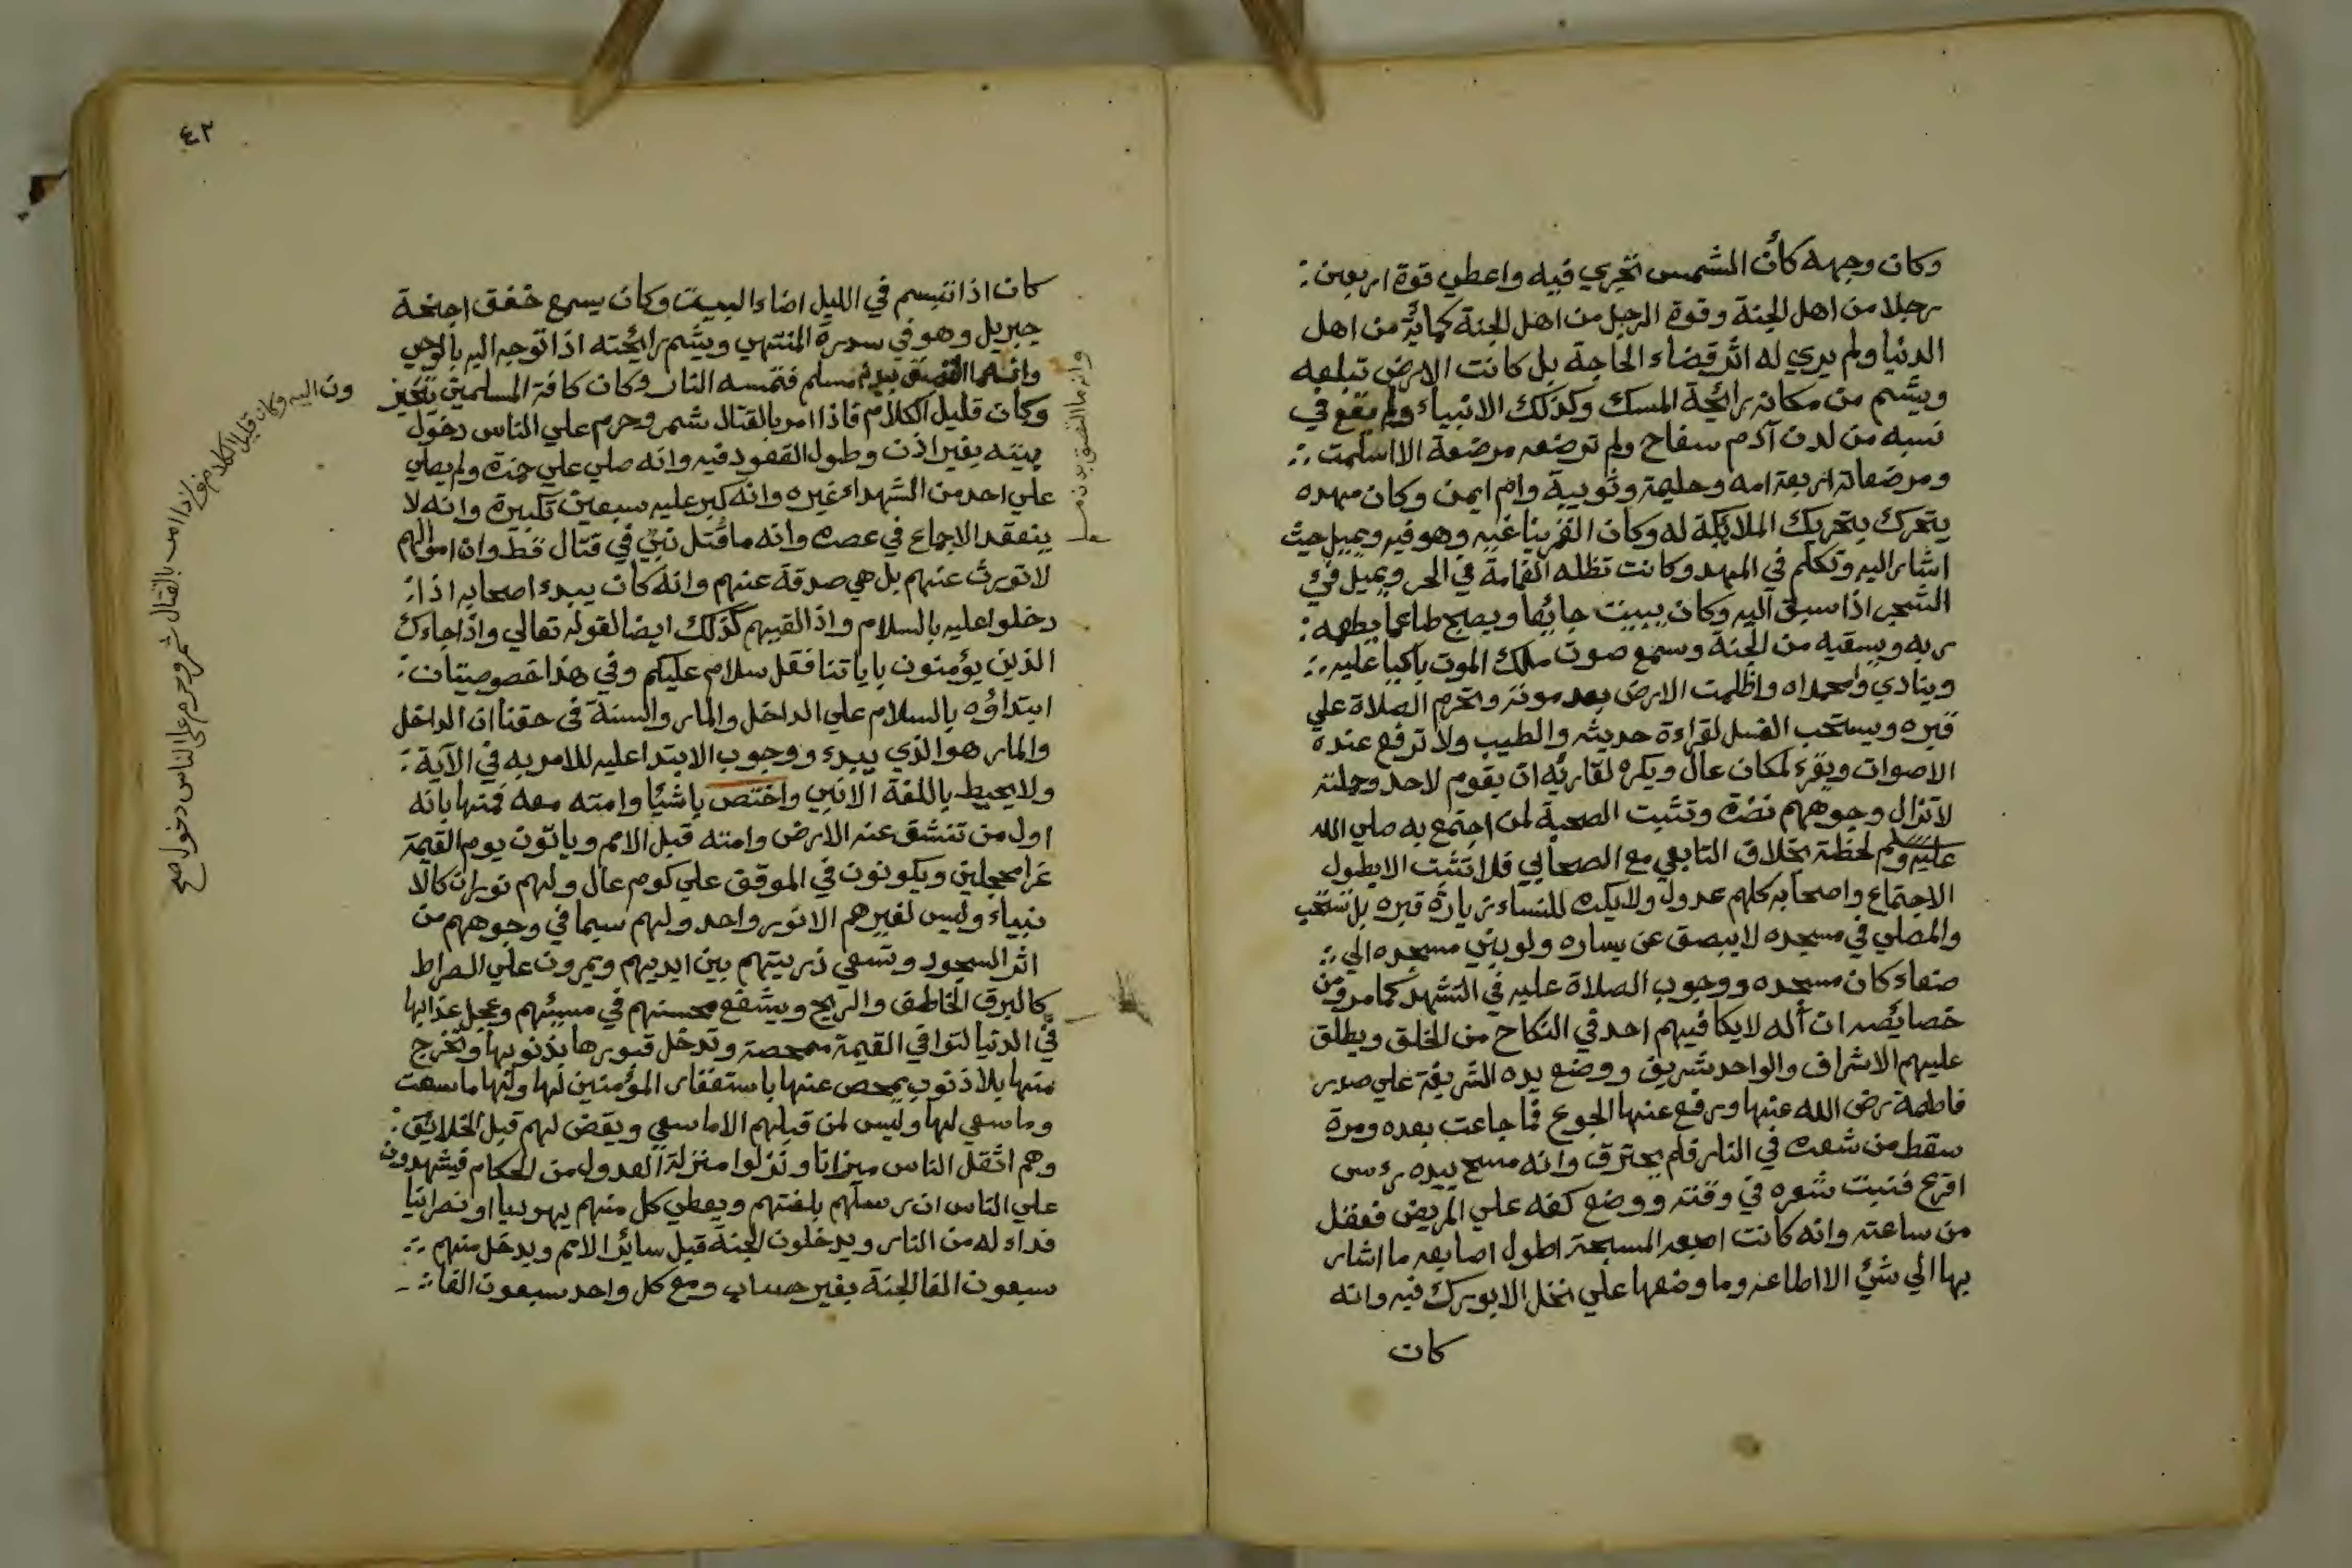 وكان وجهه كأن الشمس تجري فيه واعطي قوة اربعين
رجلا من اهل الجنة وقوة الرجل من اهل الجنة كمائة من اهل
الدنيا ولم يري له اثر قضاء الحاجة بل كانت الارض تبلعه
ويشم من مكانه رائحة المسك وكذلك الانبياء ولم يقع في
نسبه من لدن آدم سفاح ولم ترضعه مرضعة الا اسلمت
ومرضعاته اربعة امه وحليمة وثويبة وام ايمن وكان مهده
يتحرك بتحريك الملائكة له وكان القمر يناغيه وهو فيه ويميل حيث
اشار اليه وتكلم في المهد وكانت تظله الغمامة في الحر ويميل فيء
الشجر اذا سبق اليه وكان يبيت جائعا ويصبح طاعما يطعمه
ربه ويسقيه من الجنة وسمع صوت ملك الموت باكيا عليه
وينادي وامحمداه واظلمت الارض بعد موته وتحرم الصلاة علي
قبره ويستحب الغسل لقراءة حديثه والطيب ولا ترفع عنده
الاصوات ويقرء لمكان عال ويكره لقارئه ان يقوم لاحد وحملته
لا تزال وجوههم نضرة وتثبت الصحبة لمن اجتمع به صلي الله
عليه وسلم لحظة بخلاف التابعي مع الصحابي فلا تثبت الا بطول
الاجتماع واصحابه كلهم عدول ولا يكره للنساء زيارة قبره بل تستحب
والمصلي في مسجده لا يبصق عن يساره ولو بني مسجده الي
صنعاء كان مسجده ووجوب الصلاة عليه في التشهد كما مر ومن
خصائصه ان أله لا يكافيهم احد في النكاح من الخلق ويطلق
عليهم الاشراف والواحد شريف ووضع يده الشريفة علي صدر
فاطمة رضي الله عنها ورفع عنها الجوع فما جاعت بعده ومرة
سقط من شعره في النار فلم يحترق وانه مسح بيده رءس
اقرع فنبت شعره في وقته ووضع كفه علي المريض فعقل
من ساعته وانه كانت اصبعه المسبحة اطول اصابعه ما اشار
بها الي شئ الا اطاعه وما وضعها علي نخل الا بورك فيه وانه
كان
٤٢
كان اذا تبسم في الليل اضاء البيت وكان يسمع خفق اجنحة
جبريل وهو في سدرة المنتهي ويشم رائحته اذا توجه اليه بالوحي
وانه ما التصق ببدنه مسلم فتمسه النار وكان كافة المسلمين يتحيز
وكان قليل الكلام فاذا امر بالقتال شمر وحرم علي الناس دخول
بيته بغير اذن وطول القعود فيه وانه صلي علي حمزة ولم يصلي
علي احد من الشهداء غيره وانه كبر عليه سبعين تكبيرة وانه لا
ينعقد الاجماع في عصره وانه ما قتل نبي في قتال قط وان اموالهم
لا تورث عنهم بل هي صدقة عنهم وانه كان يبدء اصحابه اذا
دخلوا عليه بالسلام واذا لقيهم كذلك ايضا لقوله تعالي واذا جاءك
الذين يؤمنون باياتنا فقل سلام عليكم وفي هذا خصوصيتان
ابتداؤه بالسلام علي الداخل والمار والسنة في حقنا ان الداخل
والمار هو الذي يبدء ووجوب الابتدا عليه للامر به في الآية
ولا يحيط باللغة الا نبي واختص باشيا وامته معه فمنها بانه
اول من تنشق عنه الارض وامته قبل الامم وياتون يوم القيمة
غرا محجلين ويكونون في الموقف علي كوم عال ولهم نوران كالا
نبياء وليس لغيرهم الا نور واحد ولهم سيما في وجوههم من
اثر السجود وتسعي ذريتهم بين ايديهم ويمرون علي الصراط
كالبرق الخاطف والريح ويشفع محسنهم في مسيئهم وعجل عذابها
في الدنيا لتوافي القيمة ممحصة وتدخل قبورها بذنوبها وتخرج
منها بلا ذنوب يمحص عنها باستغفار المؤمنين لها ولها ما سعت
وما سعي لها وليس لمن قبلهم الا ما سعي ويقضي لهم قبل الخلائق
وهم اثقل الناس ميزانا ونزلوا منزلة العدول من الحكام فيشهدون
علي الناس ان رسلهم بلغتهم ويعطي كل منهم يهوديا او نصرانيا
فداء له من النار ويدخلون الجنة قبل سائر الامم ويدخل منهم
سبعون الفا الجنة بغير حساب ومع كل واحد سبعون الفا
وانه ما التصق ببدنه مسلم
ون اليه وكان قليل الكلام فاذا امر بالقتال شمر وحرم علي الناس دخول صح